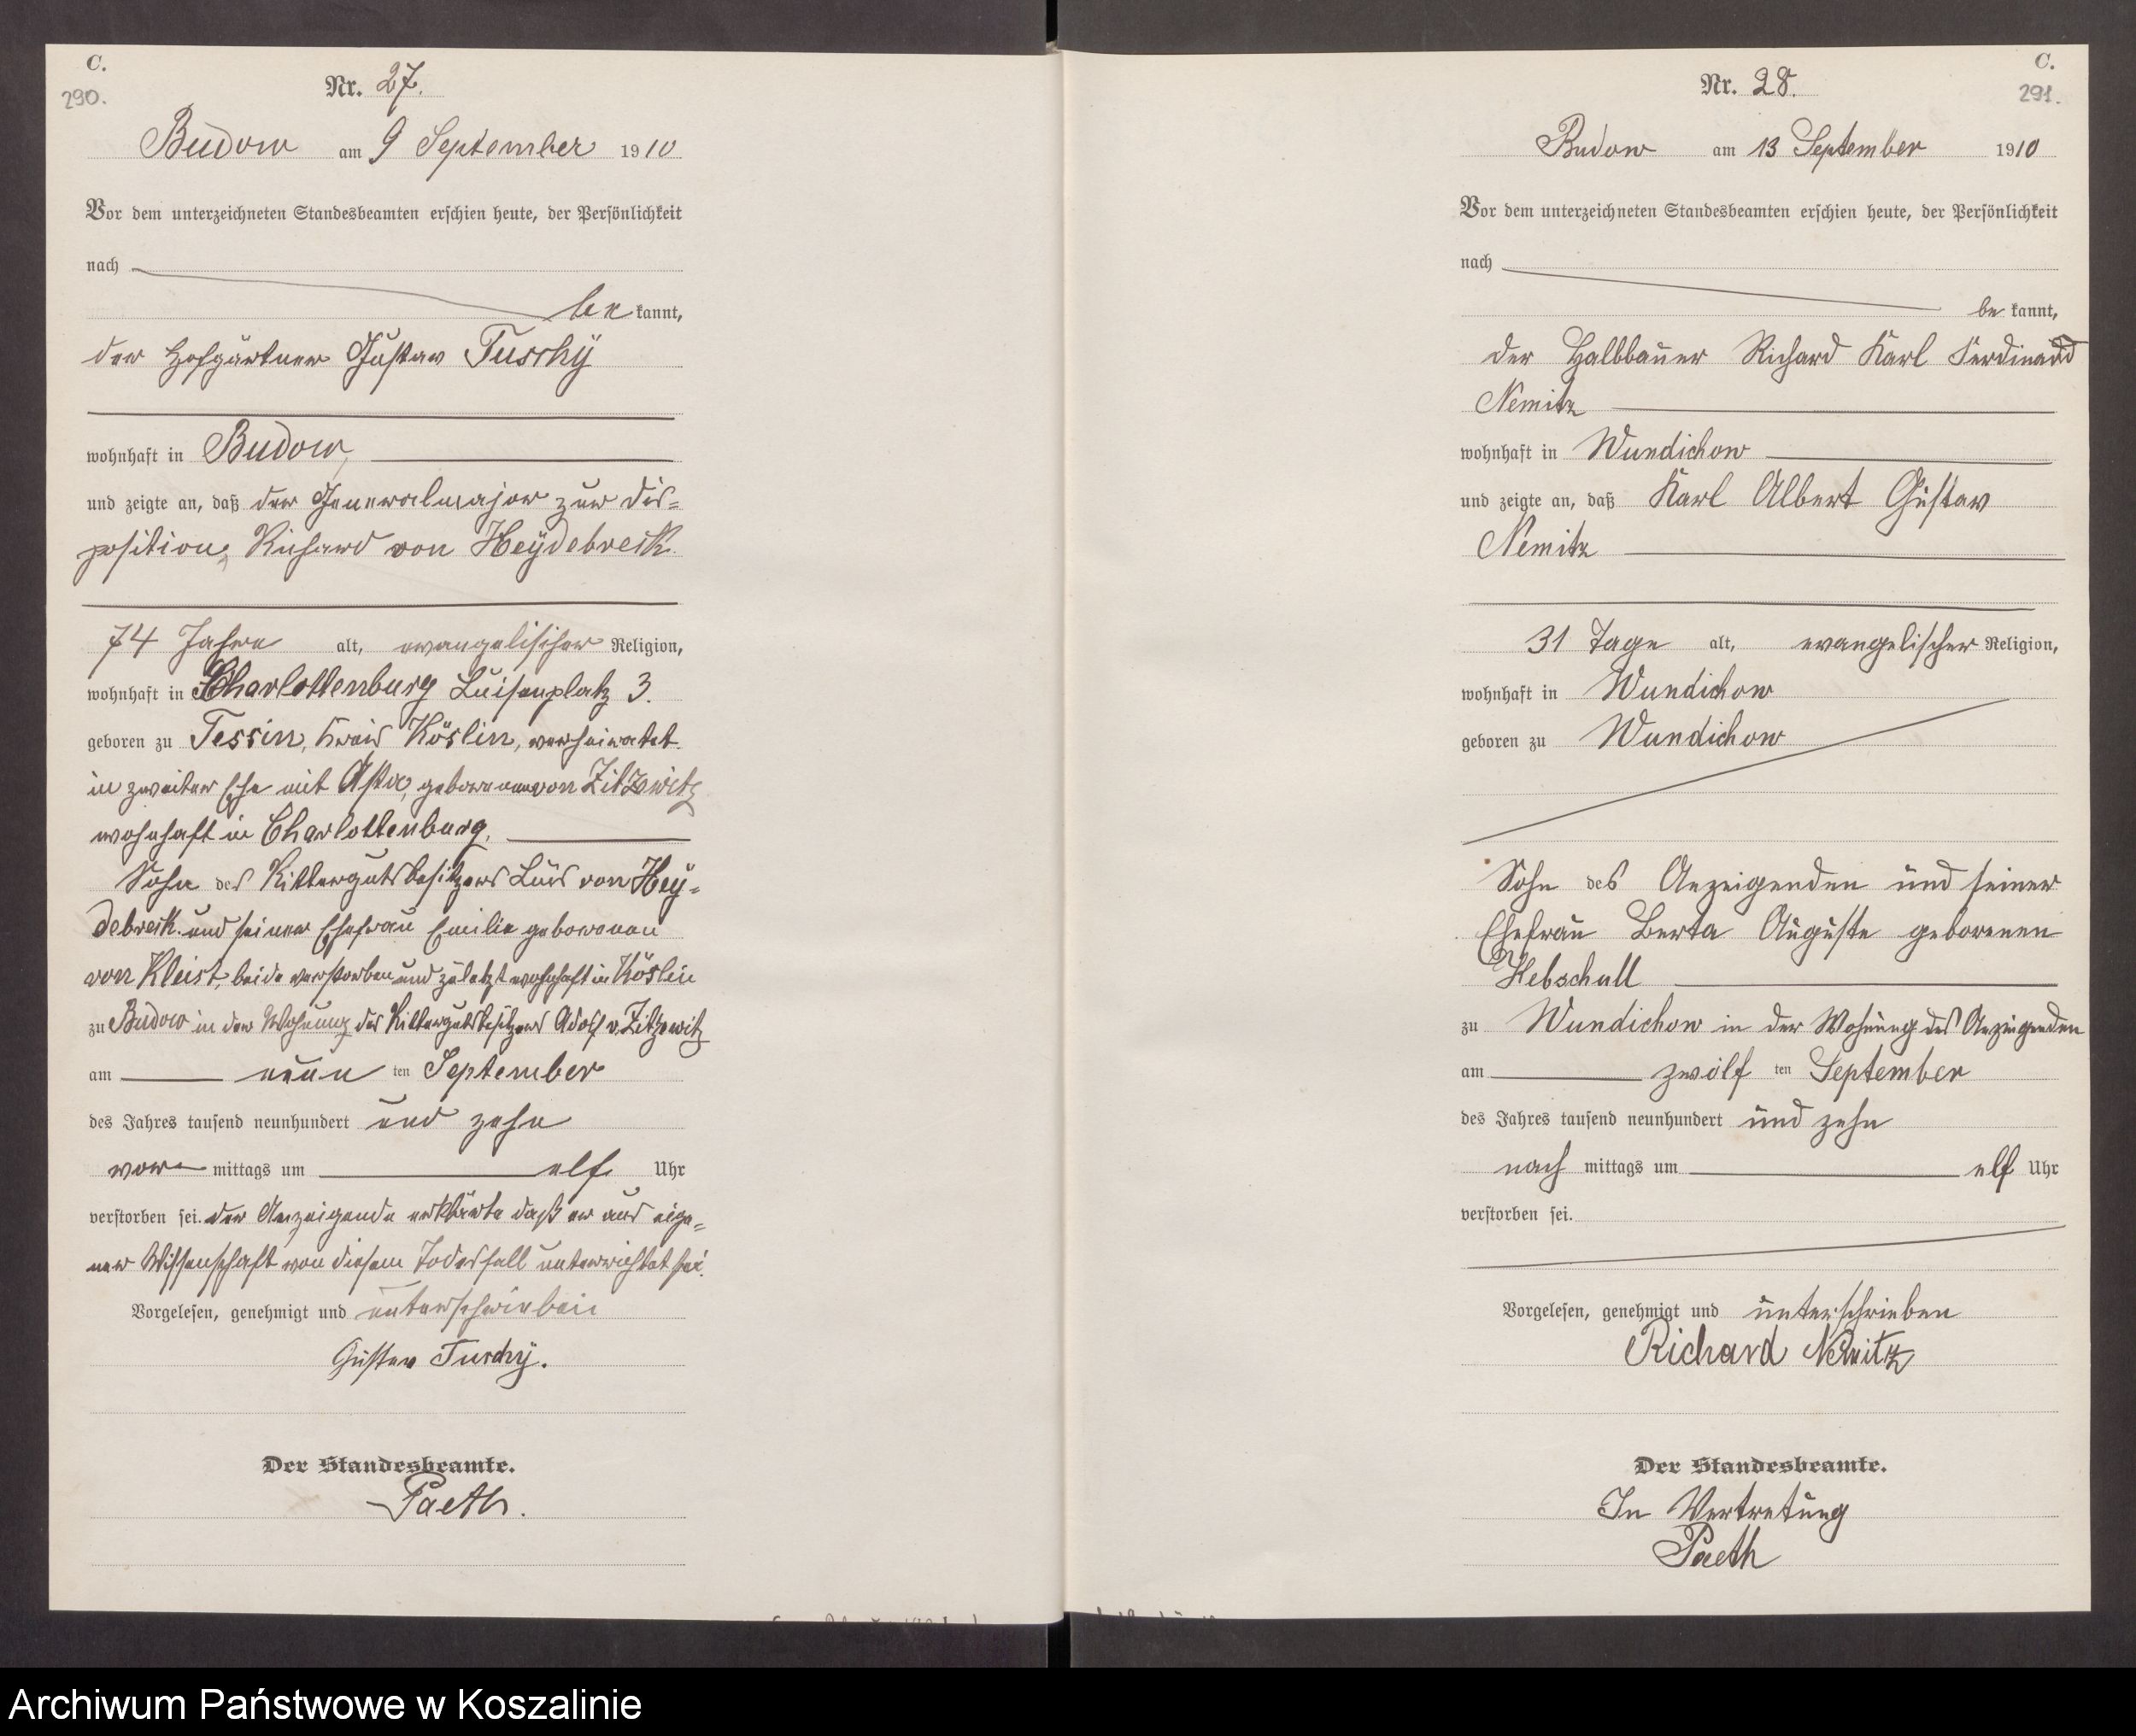 C.
290.
Nr. 27.
Budow am 9 September 1910
Vor dem unterzeichneten Standesbeamten erschien heute, der Persönlichkeit
nach
be kannt,
der Hofgärtner Gustav Tuschÿ
wohnhaft in Budow,
und zeigte an, daß der Generalmajor zur Dis=
position, Richard von Heÿdebreck.
74 Jahre alt, evangelischer Religion,
wohnhaft in Charlottenburg Luisenplatz 3.
geboren zu Tessin, Kreis Köslin, verheiratet
in zweiter Ehe mit Asta, geborenen von Zitzewitz
wohnhaft in Charlottenburg,
Sohn des Rittergutsbesitzers von Heÿ=
debreck und seiner Ehefrau Emilie geborenen
von Kleist, beide verstorben und zuletzt wohnhaft in Köslin
zu Budow in der Wohnung des Rittergutsbesitzers Adolf v. Zitzewitz
am neun ten September
des Jahres tausend neunhundert und zehn
vor mittags um elf Uhr
verstorben sei. der Anzeigende erklärte daß er aus eige=
ner Wissenschaft von diesem Todesfall unterrichtet sei.
Vorgelesen, genehmigt und unterschrieben
Gustav Tuschÿ.
Der Standesbeamte.
Paeth.
C.
291.
Nr. 28.
Budow am 13 September 1910
Vor dem unterzeichneten Standesbeamten erschien heute, der Persönlichkeit
nach
be kannt,
der Halbbauer Richard Karl Ferdinand
Nemitz
wohnhaft in Wundichow
und zeigte an, daß Karl Albert Gustav
Nemitz
31 Tage alt, evangelischer Religion,
wohnhaft in Wundichow
geboren zu Wundichow
Sohn des Anzeigenden und seiner
Ehefrau Berta Auguste geborenen
Kebschull
zu Wundichow in der Wohnung des Anzeigenden
am zwölf ten September
des Jahres tausend neunhundert und zehn
nach mittags um elf Uhr
verstorben sei.
Vorgelesen, genehmigt und unterschrieben
Richard Nemitz
Der Standesbeamte.
In Vertretung
Paeth
Archiwum Państwowe w Koszalinie